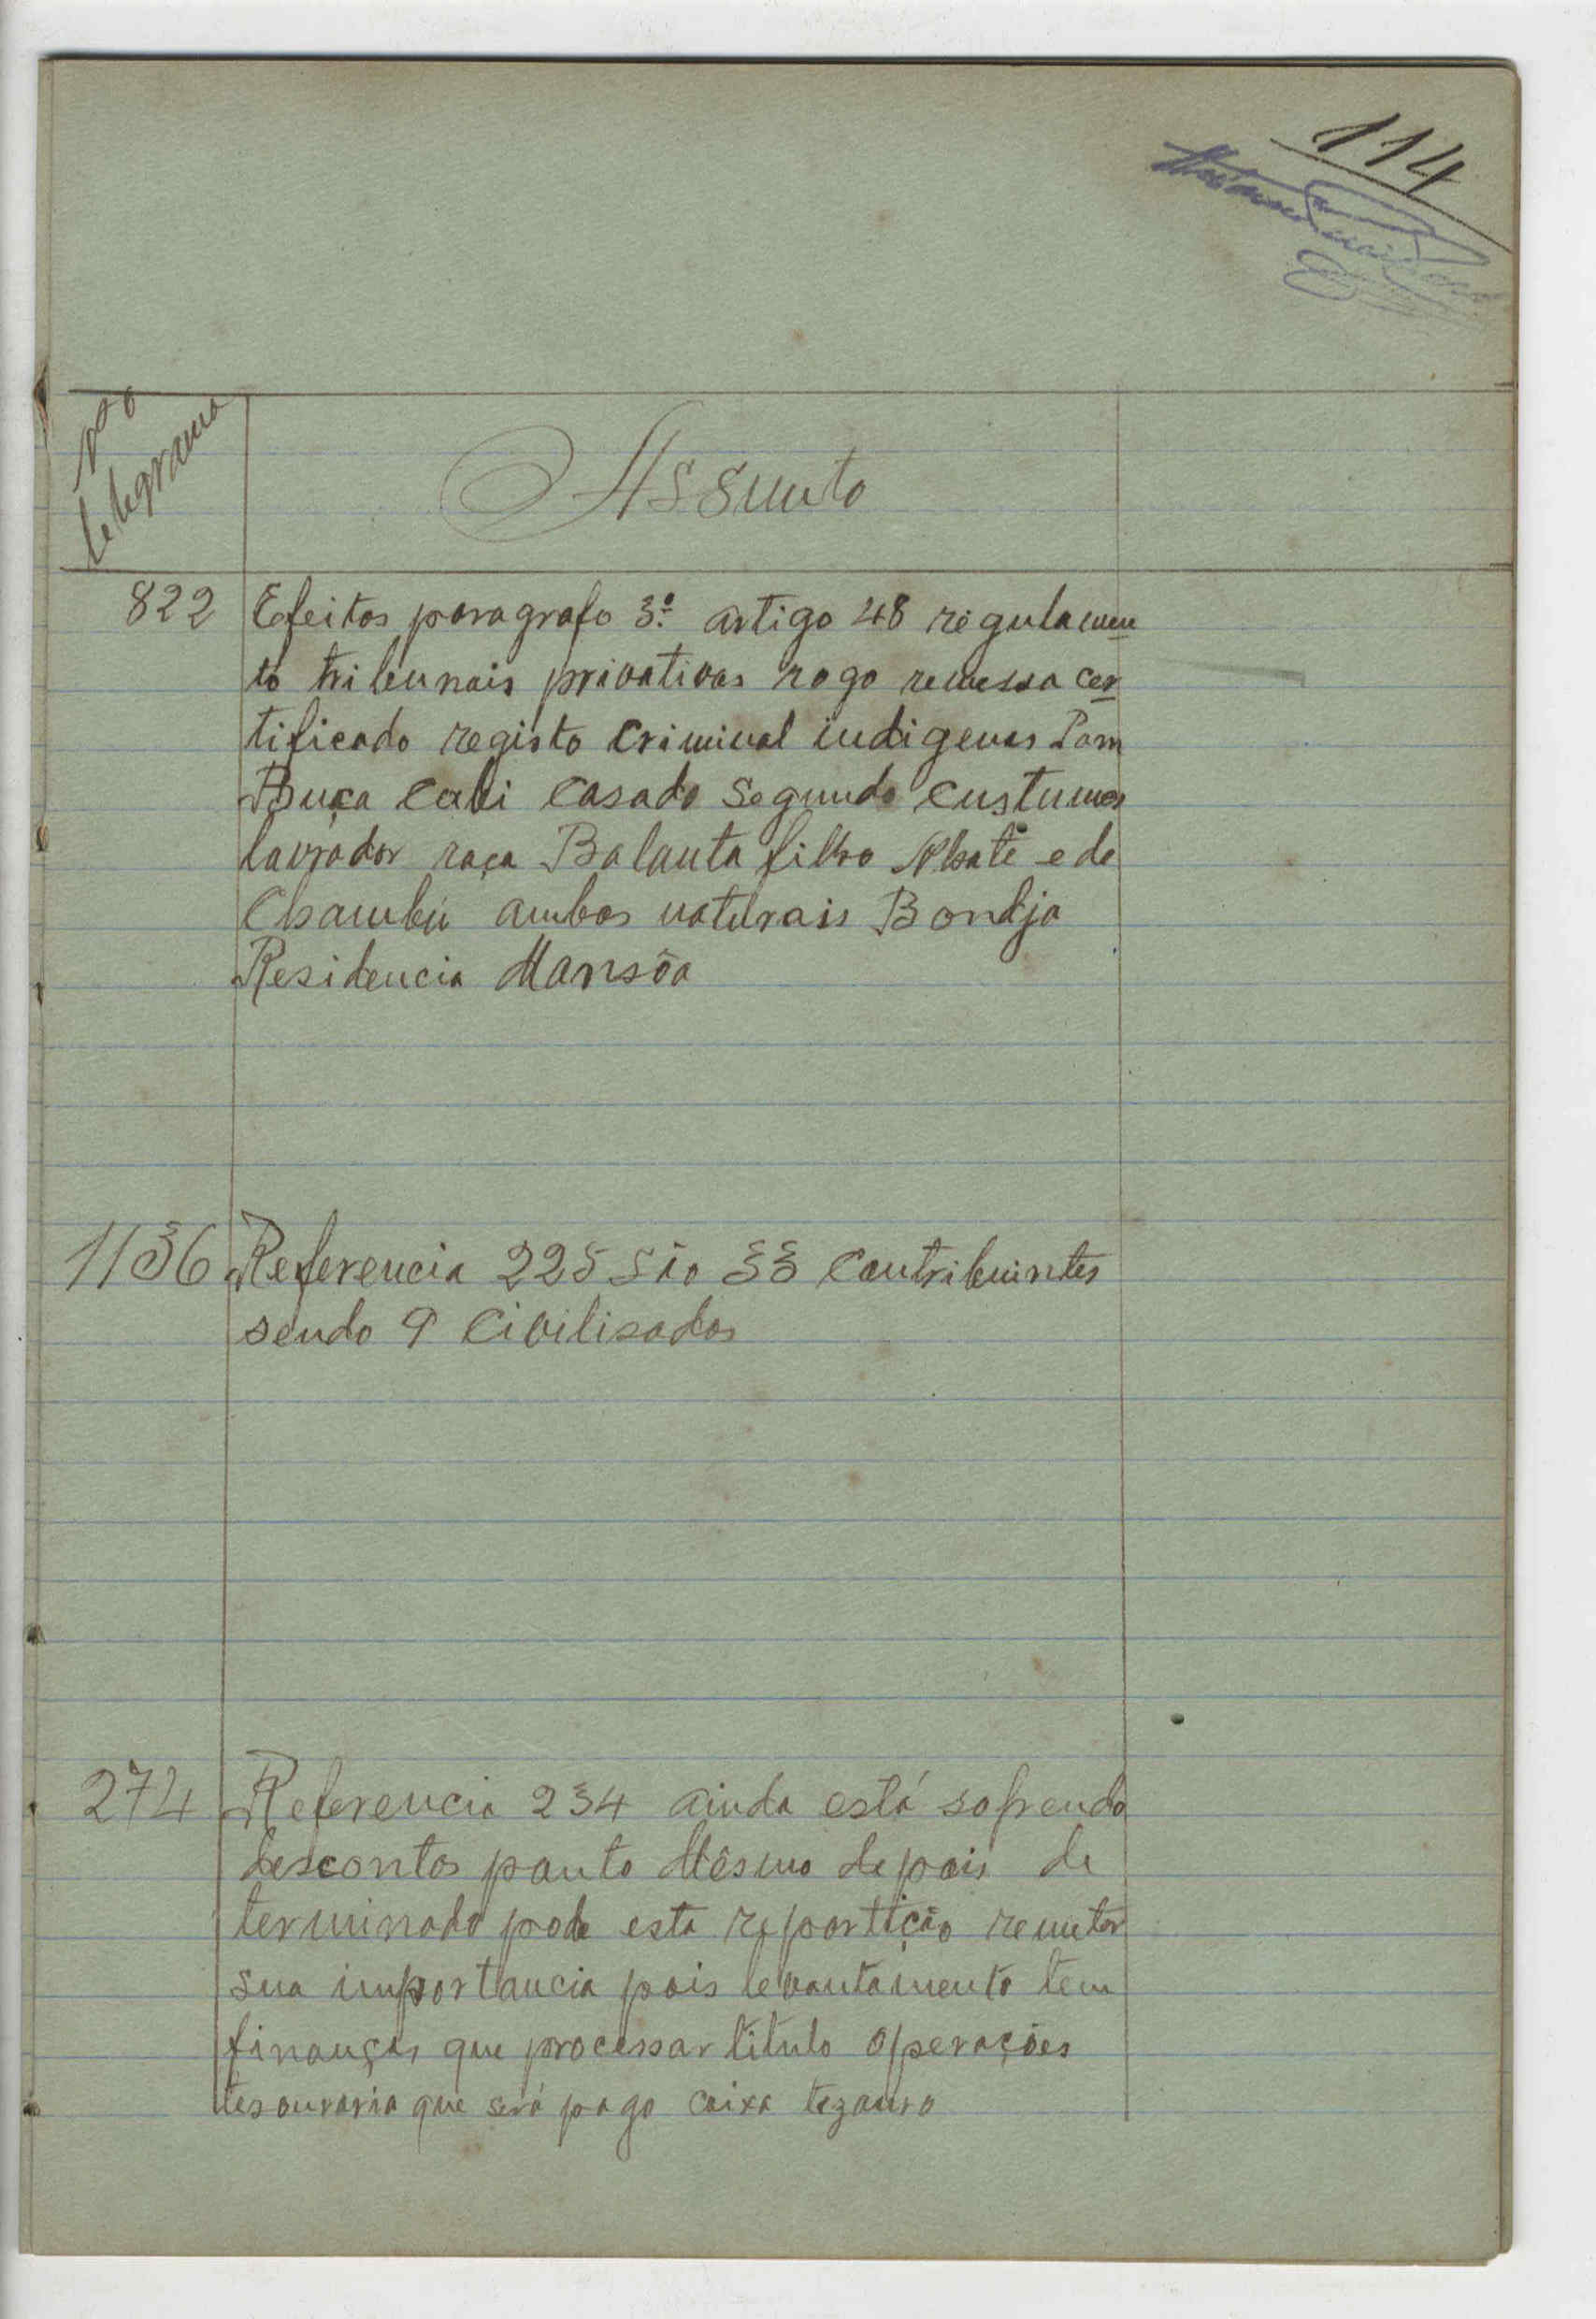 114
Nº
telegrama
Assunto
822 Efeitos paragrafo 3º artigo 48 regulamen
to tribunais privativos rogo remessa cer
tificado registo criminal indigenas Pam
Buça Cabi casado segundo custumes
lavrador raça Balanta filho Nhaté e de
Chambú ambos naturais Bondjo
Residencia Mansôa
1136 Referencia 225 São 33 contribuintes
sendo 9 civilisados
274 Referencia 234 ainda está sofrendo
descontos ponto Mêsmo depois de
terminado pode esta repartição remeter
sua importancia pois levantamento tem
finanças que processar titulo operações
tesouraria que será pago caixa tezouro